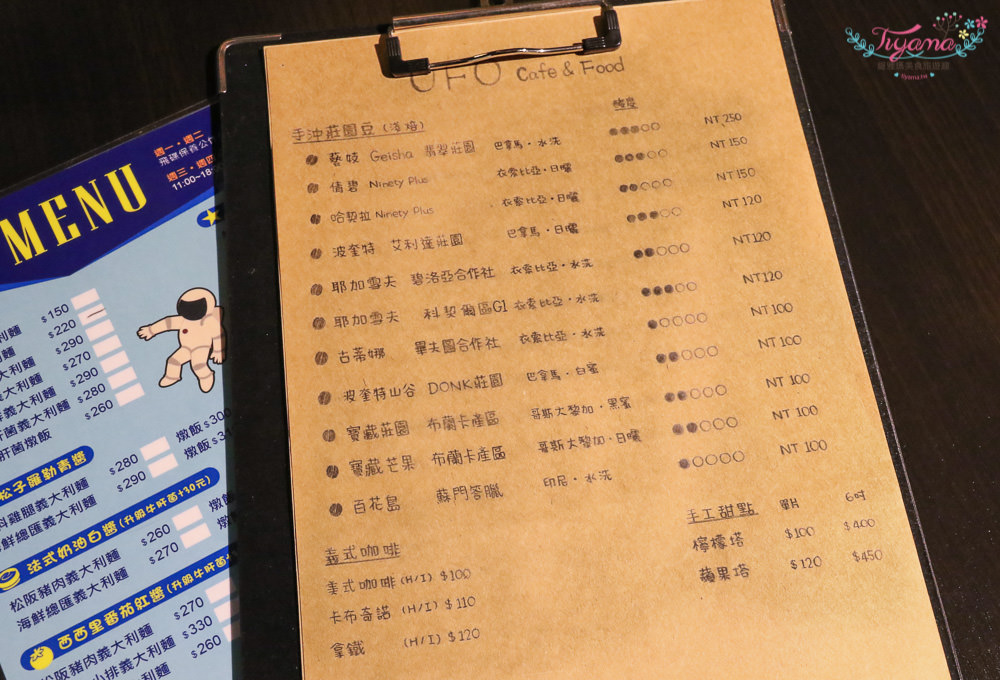 UFO Cafe & Food
手沖莊園豆(淺焙) 酸度
藝妓 Geisha 翡翠莊園 巴拿馬·水洗 ●●●○○ NT 250
倩碧 Ninety Plus 衣索比亞·日曬 ●●●○○ NT 150
哈契拉 Ninety Plus 衣索比亞·日曬 ●●○○○ NT 150
波奎特 艾利達莊園 巴拿馬·日曬 ●●●○○ NT 120
耶加雪夫 碧洛亞合作社 衣索比亞·水洗 ●●○○○ NT 120
耶加雪夫 科契爾區G1 衣索比亞·水洗 ●●●○○ NT 120
古蒂娜 畢夫圖合作社 衣索比亞·水洗 ●○○○○ NT 100
波奎特山谷 DONK莊園 巴拿馬·白蜜 ●●○○○ NT 100
寶藏莊園 布蘭卡產區 哥斯大黎加·黑蜜 ●●○○○ NT 100
寶藏芒果 布蘭卡產區 哥斯大黎加·日曬 ●●○○○ NT 100
百花島 蘇門答臘 印尼·水洗 ●○○○○ NT 100
義式咖啡
美式咖啡 (H/I) $100
卡布奇諾 (H/I) $110
拿鐵 (H/I) $120
手工甜點 單片 6吋
檸檬塔 $100 $400
蘋果塔 $120 $450
MENU
週一·週二
飛碟保養公
週三·週四
11:00~18
利麵 $150
麵 $220
義大利麵 $290
義大利麵 $270
義大利麵 $290
肝菌義大利麵 $280
肝菌燉飯 $260
松子羅勒青醬
雞腿義大利麵 $280 燉飯 $300
海鮮總匯義大利麵 $290 燉飯 $31
法式奶油白醬 (升級牛肝菌+30元)
松阪豬肉義大利麵 $260 燉
海鮮總匯義大利麵 $270
西西里番茄紅醬 (升級牛肝菌
松阪豬肉義大利麵 $270
小排義大利麵 $330
義大利麵 $260
Tiyama
tiyama.tw